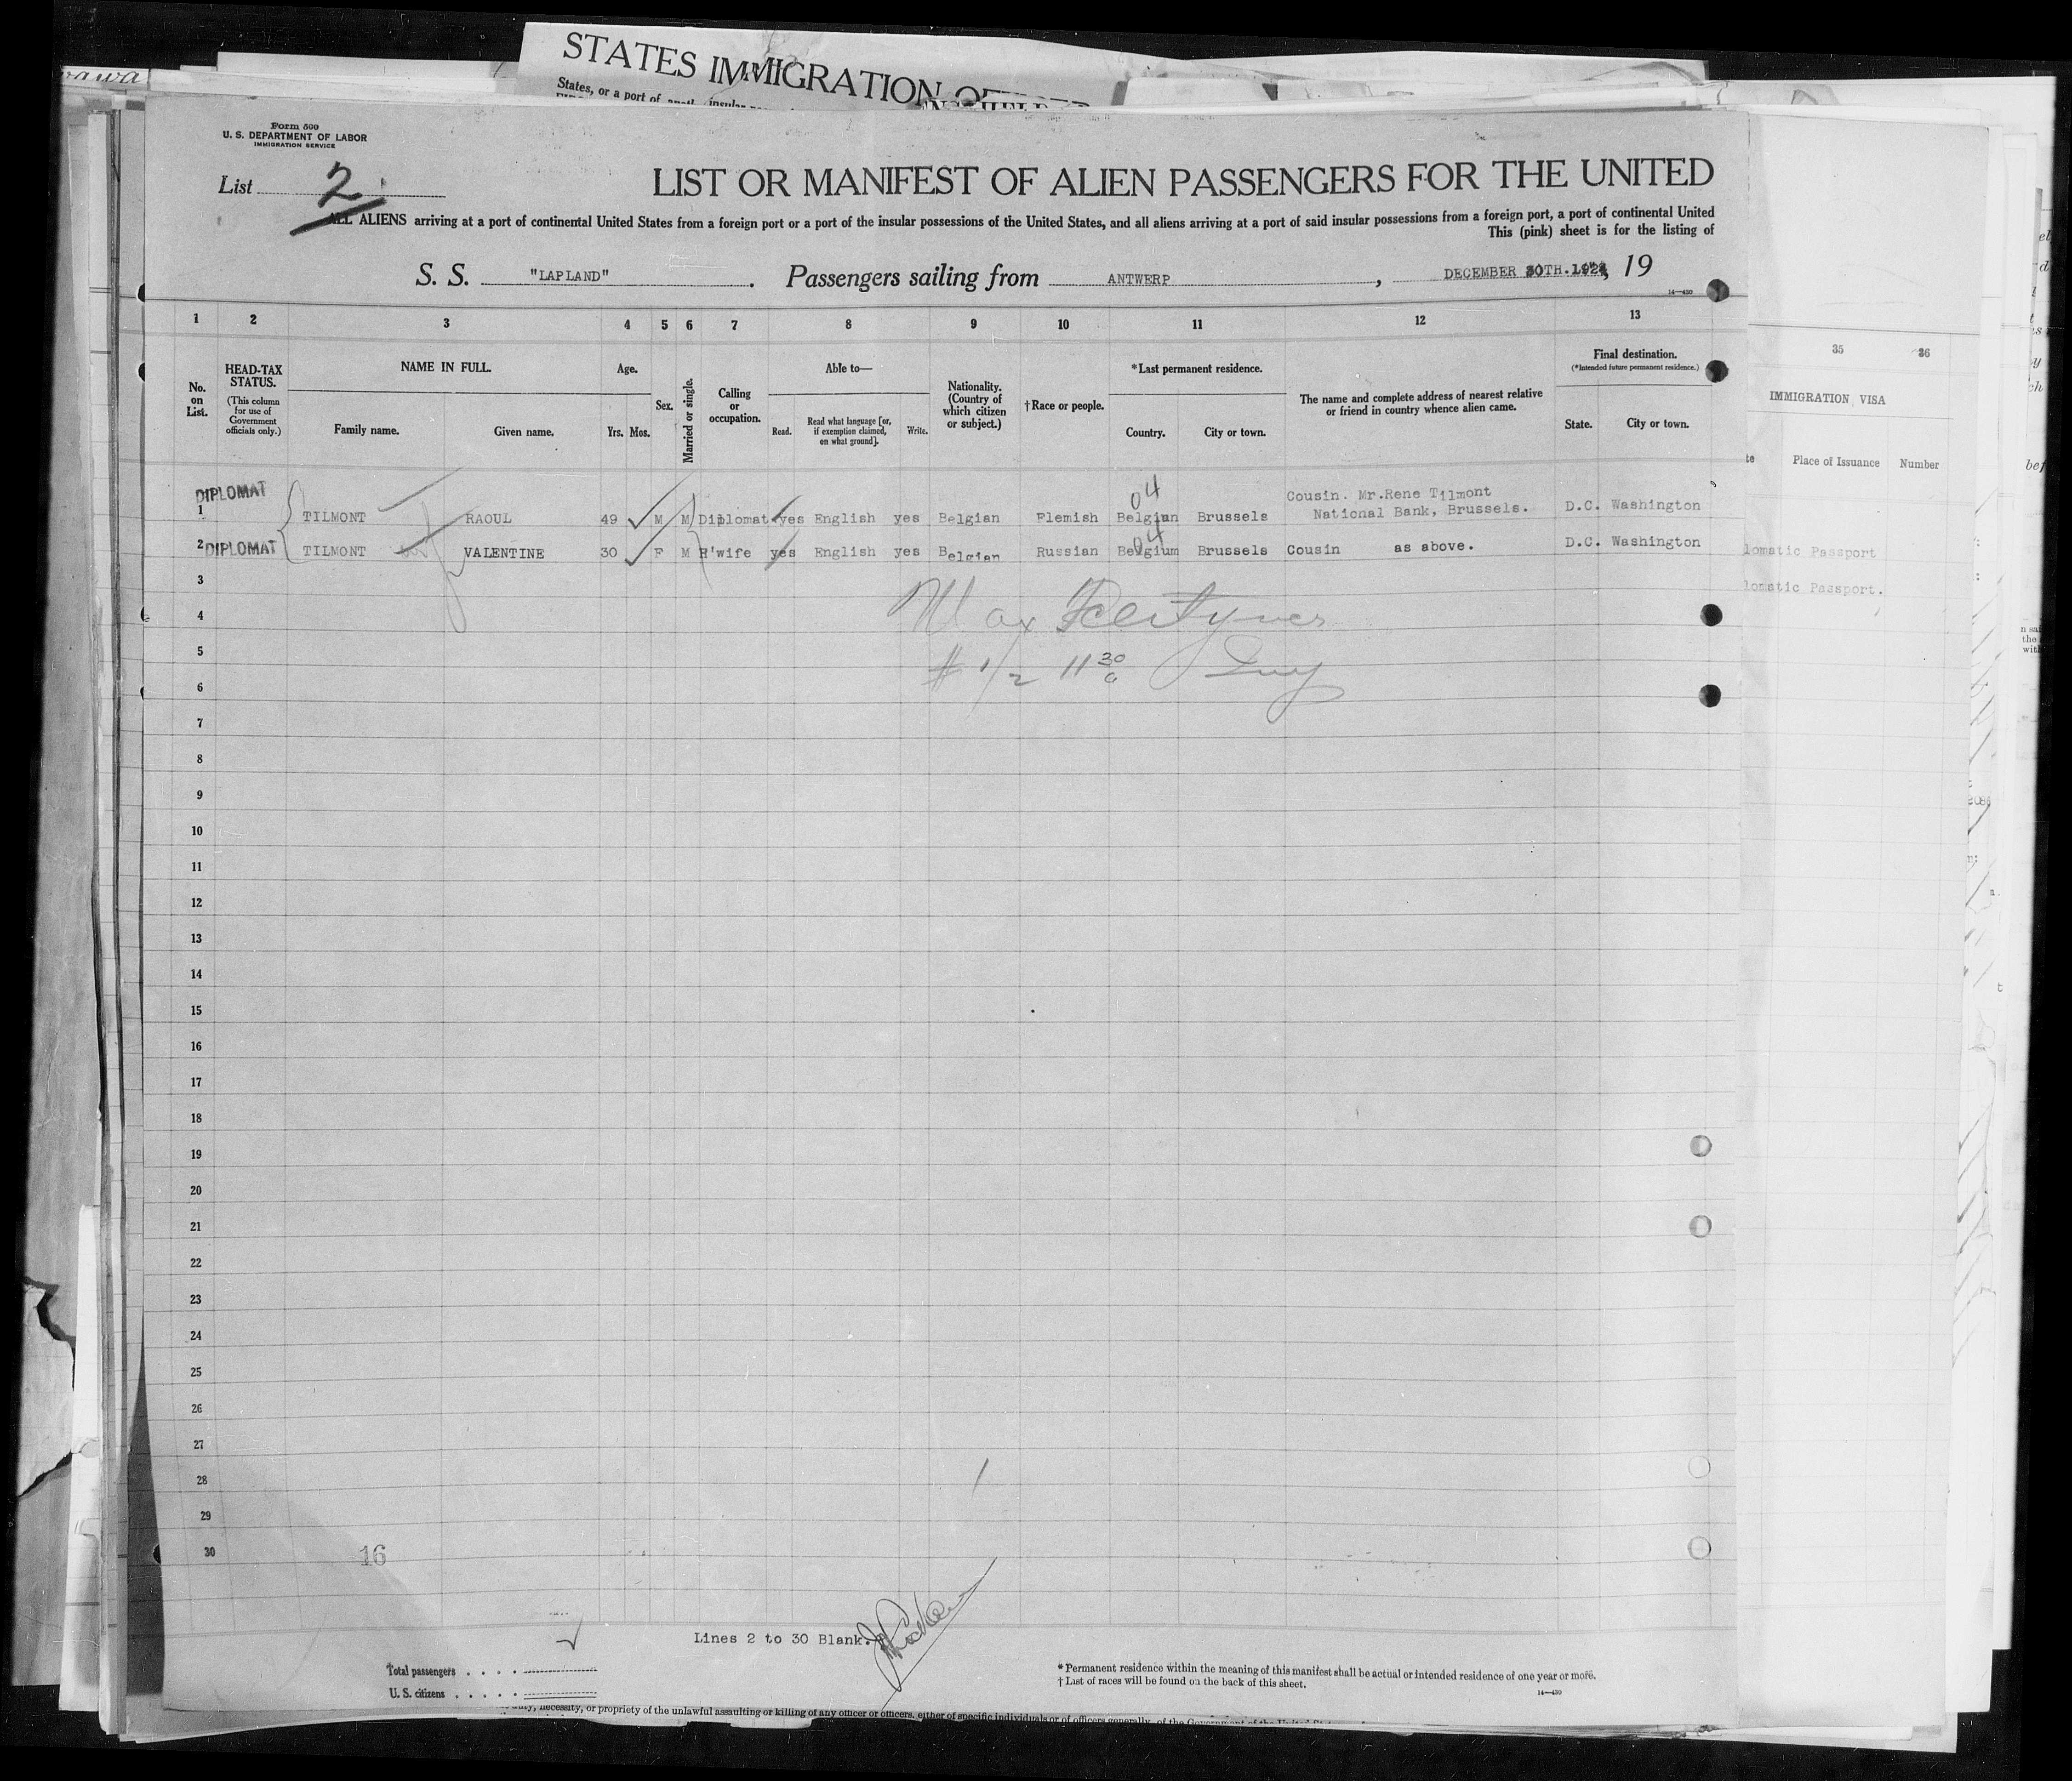 STATES IMMIGRATION
States, or a port of
Form 500
U. S. DEPARTMENT OF LABOR
IMMIGRATION SERVICE
List 2
LIST OR MANIFEST OF ALIEN PASSENGERS FOR THE UNITED
ALL ALIENS arriving at a port of continental United States from a foreign port or a port of the insular possessions of the United States, and all aliens arriving at a port of said insular possessions from a foreign port, a port of continental United
This (pink) sheet is for the listing of
S. S. "LAPLAND". Passengers sailing from ANTWERP, DECEMBER 30TH. 19
14—430
1 2 3 4 5 6 7 8 9 10 11 12 13
No. on List.
HEAD-TAX STATUS.
(This column for use of Government officials only.)
NAME IN FULL.
Family name. Given name.
Age.
Yrs. Mos.
Sex.
Married or single.
Calling or occupation.
Able to—
Read. Read what language [or, if exemption claimed, on what ground]. Write.
Nationality. (Country of which citizen or subject.)
†Race or people.
*Last permanent residence.
Country. City or town.
The name and complete address of nearest relative or friend in country whence alien came.
Final destination.
(*Intended future permanent residence.)
State. City or town.
35 36
IMMIGRATION VISA
Place of Issuance Number
DIPLOMAT
04
Cousin. Mr.Rene Tilmont
1 TILMONT RAOUL 49 M M Diplomat yes English yes Belgian Flemish Belgian Brussels National Bank, Brussels. D.C. Washington
04
2 DIPLOMAT TILMONT VALENTINE 30 F M H'wife yes English yes Belgian Russian Belgium Brussels Cousin as above. D.C. Washington
lomatic Passport
lomatic Passport.
3
4 Max
5
# 1/2 11 30
6
7
8
9
10
11
12
13
14
15
16
17
18
19
20
21
22
23
24
25
26
27
28
29
30
16
Lines 2 to 30 Blank.
Total passengers . . . .
U. S. citizens . . . . .
* Permanent residence within the meaning of this manifest shall be actual or intended residence of one year or more.
† List of races will be found on the back of this sheet.
14—430
necessity, or propriety of the unlawful assaulting or killing of any officer or officers, either of specific individuals or of officers generally, of the Government of the United